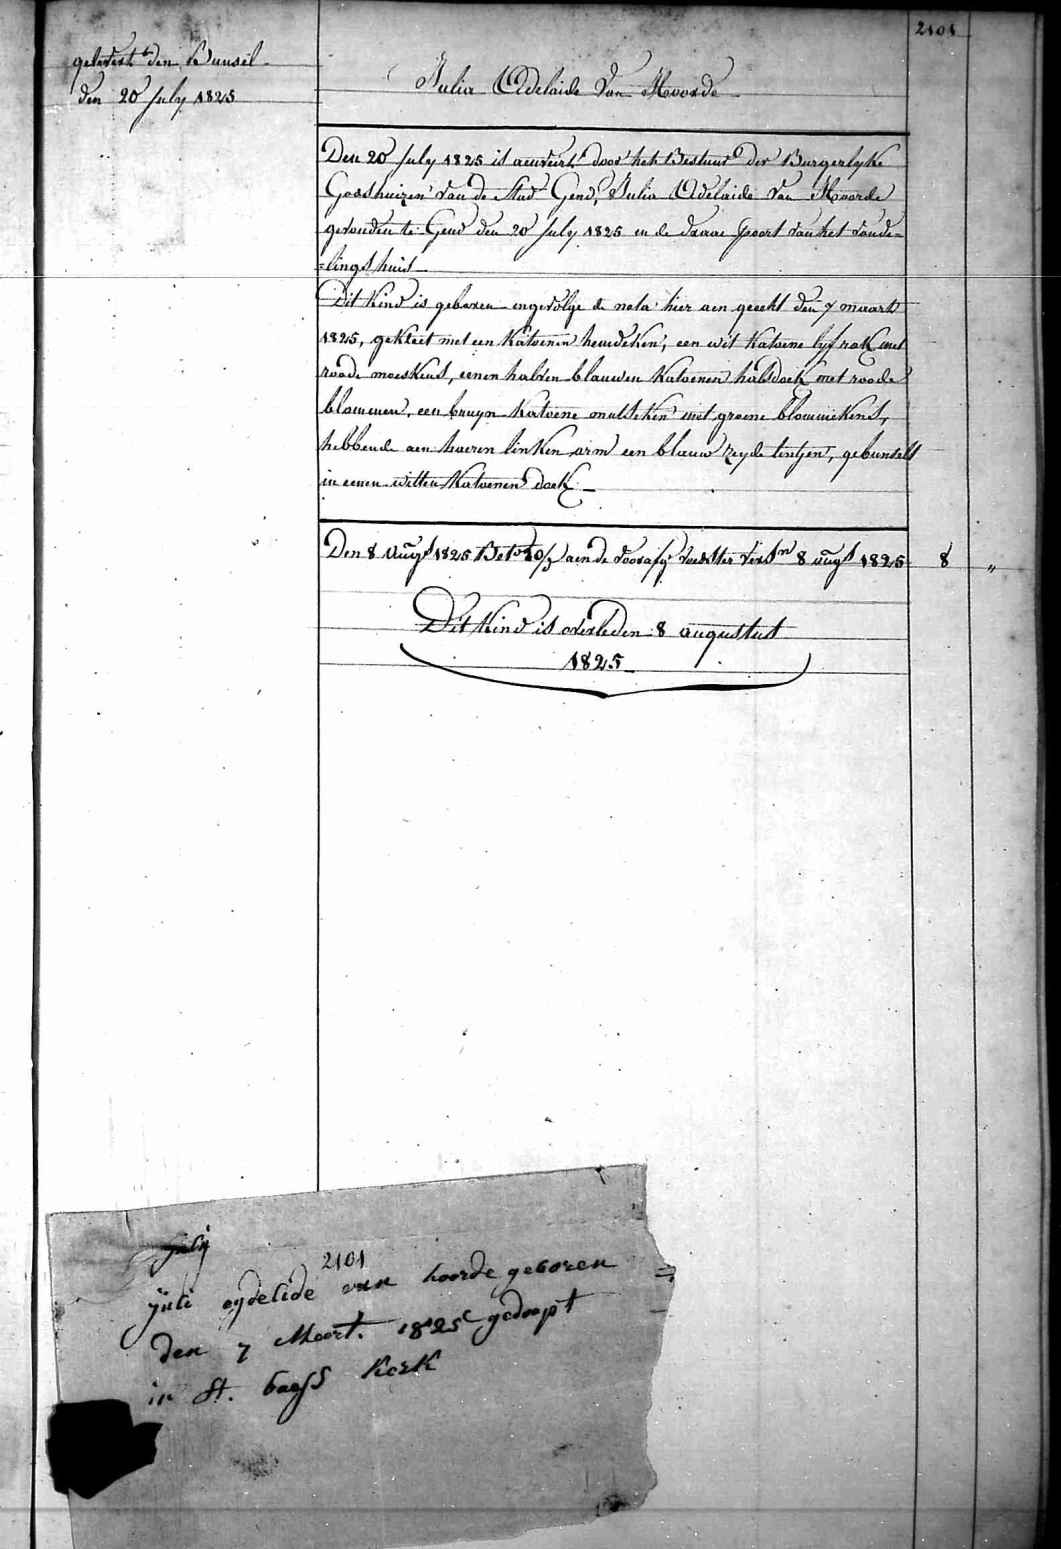 2101
gelevert den Bunsel
den 20 July 1825
Julia Adelaide Van Hoorde
Den 20 July 1825 is aenveert door het Bestuur der Burgerlyke
Godshuizen van de Stad Gend, Julia Adelaide Van Hoorde
gevonden te Gend den 20 July 1825 in de draae poort van het vonde=
=lings huis
Dit Kind is geboren ingevolge de nota hier aen geecht den 7 maart
1825, gekleet met een Katoenen hemdeken, een wit Katoene lyfrok met
roode moeskens, eenen halven blauwen Katoenen halsdoek met roode
blommen, een bruyn Katoene mutseken met groene blommekens,
hebbende aen haeren linken arm een blauw zeyde lintjen, gebunselt
in eenen witten Katoenen doek
Den 8 Augs 1825 aen de voedster 8 augs 1825 8 "
Dit Kind is overleden 8 augustus
1825
July
2101
juli aydelide van hoorde geboren
den 7 Meert. 1825 gedoopt
in St. baafs Kerk